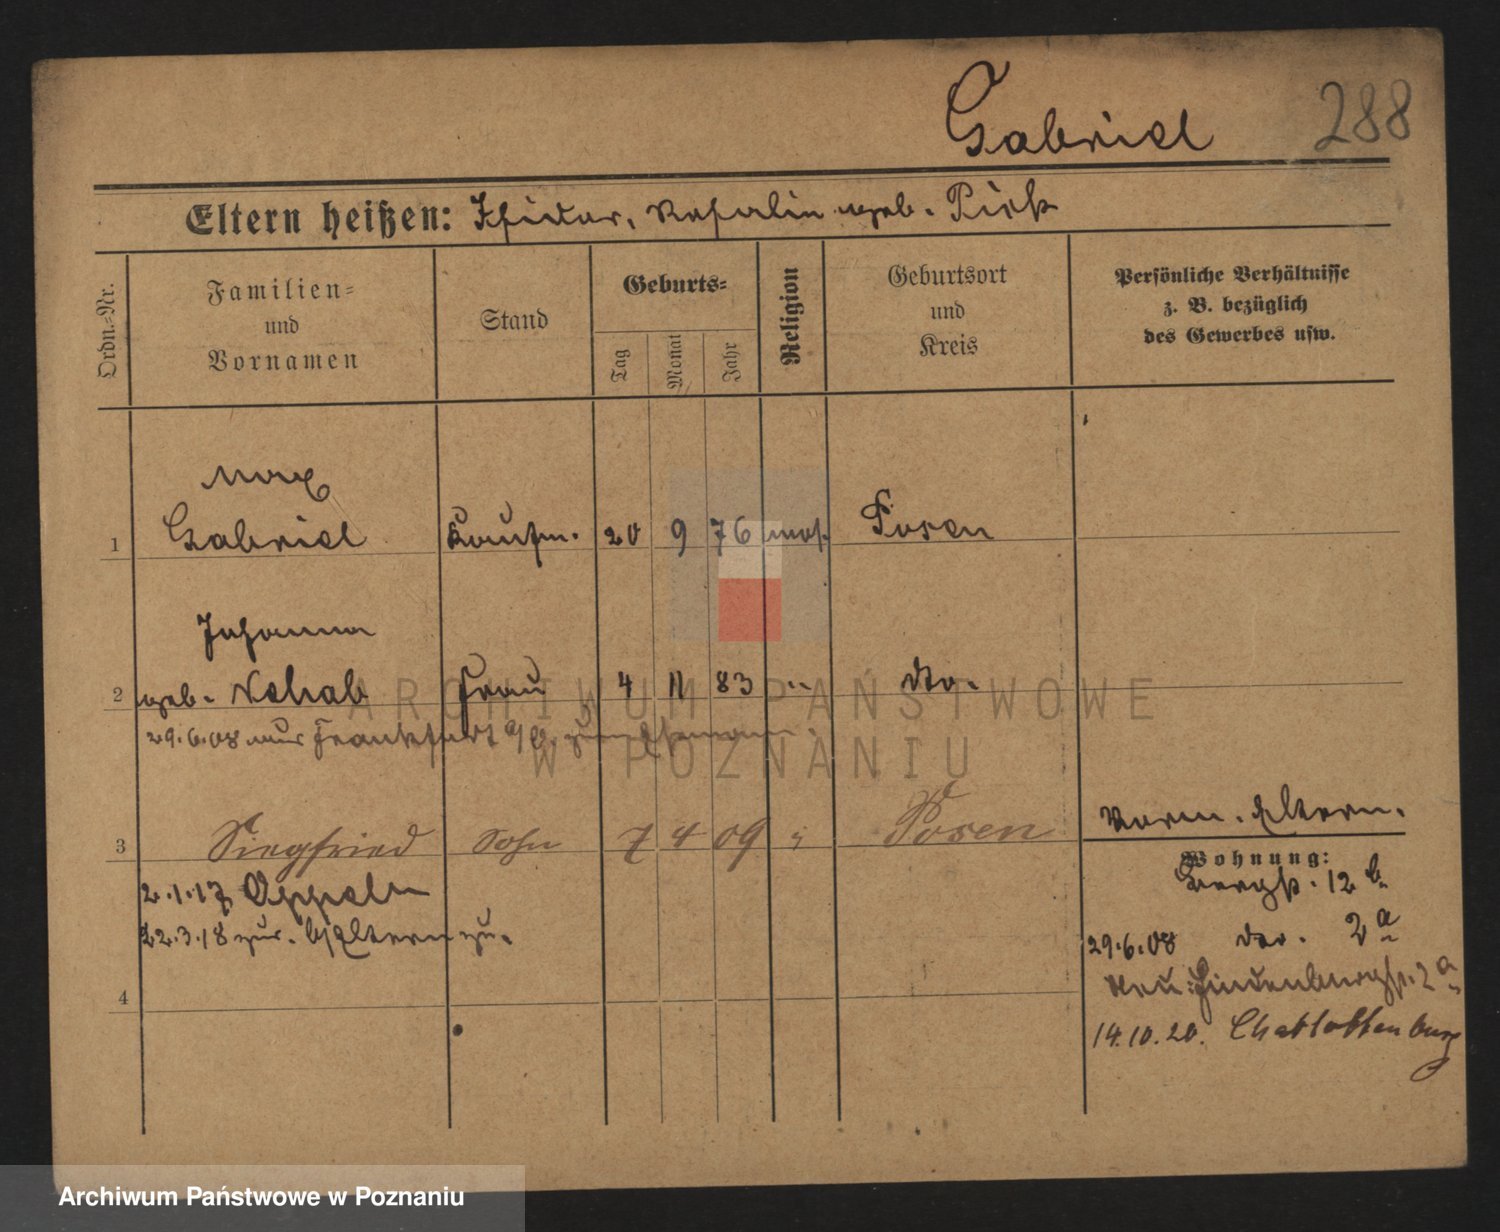 Gabriel 288
Eltern heißen: Isidor, Rosalin geb. Pick
Ordn.-Nr.
Familien-
und
Vornamen
Stand
Geburts-
Tag
Monat
Jahr
Religion
Geburtsort
und
Kreis
Persönliche Verhältnisse
z. B. bezüglich
des Gewerbes usw.
Max
1 Gabriel Kaufm. 20 9 76 mos. Posen
Johanna
2 geb. Schab Frau 4 11 83 " do.
29.6.08 aus Frankfurt a/O.
3 Siegfried Sohn 7 4 09 " Posen
2.1.17 Oppeln
22.3.18 zur. b/Eltern zu.
4
Vorm. Eltern.
Wohnung:
Bergstr. 12 b
29.6.08 do. 2a
Neu: Hindenburgstr. 2a
14.10.20. Charlottenburg
ARCHIWUM PAŃSTWOWE
W POZNANIU
Archiwum Państwowe w Poznaniu